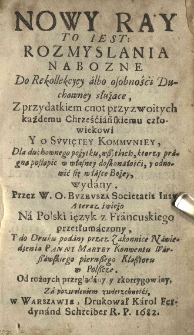 NOWY RAY
TO IEST:
ROZMYSLANIA
NABOZNE
Do Rekollekcyey álbo osobności Du-
chowney służące,
Z przydatkiem cnot przyzwoitych
każdemu Chrześćiáńskiemu czło-
wiekowi
Y O SWIĘTEY KOMMVNIEY,
Dla duchownego pożytku, wszystkich, ktorzy prá-
gną postąpić w własney doskonáłości, y odno-
wić się w łásce Bożey,
wydány.
Przez W. O. Societatis Iesu
A teraz świeżo
Ná Polski ięzyk z Fráncuskiego
przetłumáczony,
Y do Druku podány przez Zakonnice Náwie-
dzenia PANNY MARYEY Konwentu Wár-
száwskiego pierwszego Klasztoru
w Polszcze.
Od rożnych przeglądány y zkorrygowány.
Zá pozwoleniem zwierzchności,
w WARSZAWIE, Drukował Károl Fer-
dynánd Schreiber R. P. 1682.